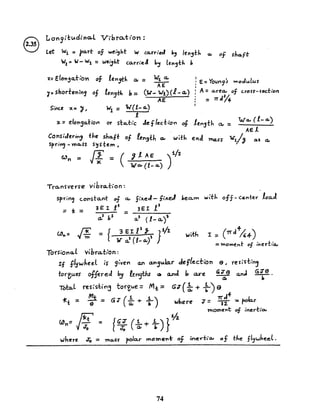 2.35
Longitudinal Vibration:
Let W₁ = part of weight W carried by length a of shaft
W₂ = W - W₁ = weight carried by length b
x = Elongation of length a = W₁ a / AE
y = shortening of length b = (W - W₁)(l - a) / AE
E = Young's modulus
A = area of cross-section = πd²/4
Since x = y, W₁ = W(l-a) / l
x = elongation or static deflection of length a = W a (l-a) / AE l
Considering the shaft of length a with end mass W₁/g as a
spring-mass system,
ωn = √(g/x) = ( g l AE / W a (l-a) )^1/2
Transverse vibration:
spring constant of a fixed-fixed beam with off-center load
= k = 3 E I l³ / a³ b³ = 3 E I l³ / a³ (l-a)³
ωn = √(k/m) = { 3 E I l³ g / W a³ (l-a)³ }^1/2 with I = (πd⁴/64)
= moment of inertia
Torsional vibration:
If flywheel is given an angular deflection θ, resisting
torques offered by lengths a and b are GJθ/a and GJθ/b.
Total resisting torque = Mt = GJ (1/a + 1/b) θ
kt = Mt/θ = GJ (1/a + 1/b) where J = πd⁴/32 = polar
moment of inertia
ωn = √(kt/J₀) = { GJ/J₀ (1/a + 1/b) }^1/2
where J₀ = mass polar moment of inertia of the flywheel.
74